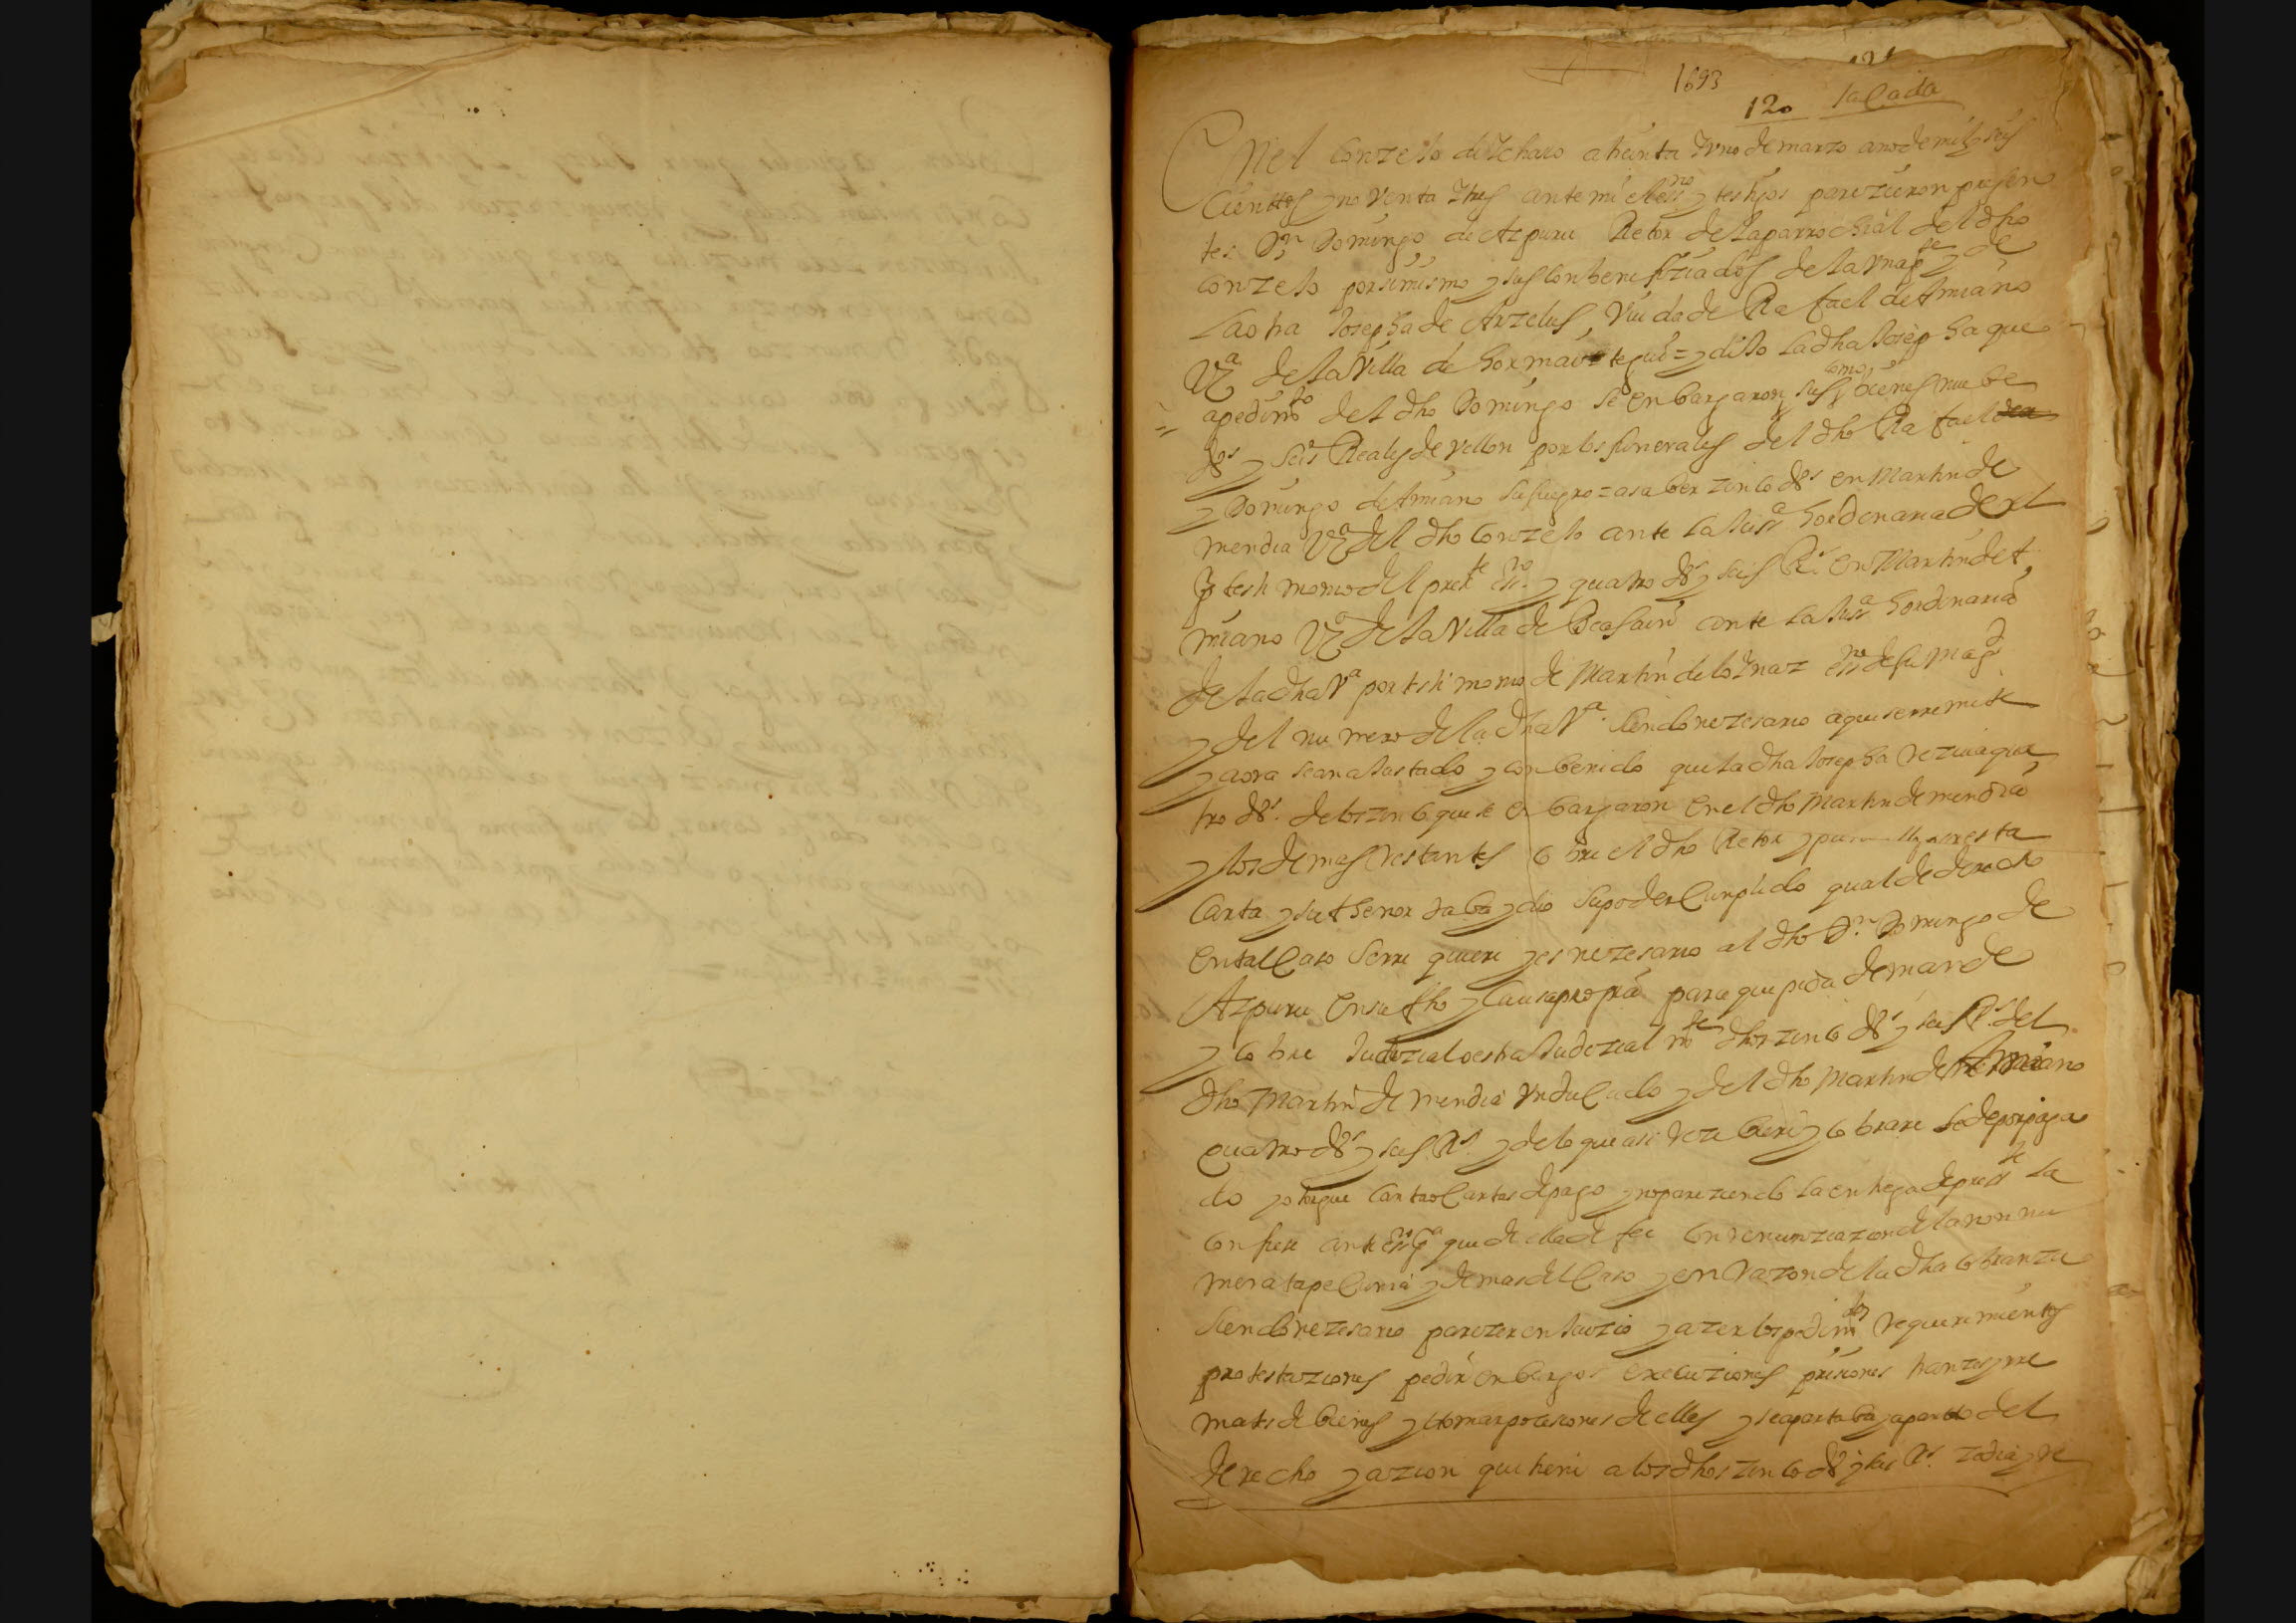 1693
120 sacada
En el Conzejo de Ychaso a treinta y uno de marzo año de mil y seis
Cientos y noventa y tres ante mi el essno y testigos parezieron presen
tes Dn Domingo de Azpuru Retor de la parrochial del dho
Conzejo por si mismo y sus Conbenefiziados de la una pte y de
La otra Josepha de Arzelus, Viuda de Rafael de Amiano
Vzª de la Villa de hormaiztegui = y dijo La dha Josepha que
a pedimto del dho Domingo se enbargaron sus como bienes nuebe
ds y seis Reales de vellon por los funerales del dho Rafael
y Domingo de Amiano su suegro = a saber zinco ds en Martin de
mendia Vzº del dho Conzejo ante La Jussª hordenaria del
Por testimonio del preste essno y quatro ds y seis Rs en Martin de A
miano Vzº de la Villa de Beasain ante La Jussª hordinaria
de la dha Vª por testimonio de Martin de loynaz essno de su Magd
y del numero de la dha Vª. Siendo nezesario a que se rremite
y aora se an ajustado y Conbenido que la dha Josepha reziua qua
tro ds. de los zinco que se enbargaron en el dho Martin de mendia
y los demas restantes Cobre el dho Retor y por esta
Carta y su thenor daba y dio su poder Cunplido qual de derecho
en tal Caso se rre quiere y es nezesario al dho Dn Domingo de
Azpuru en su fho y Causa propia para que pida demande
y Cobre Judizial o estrajudizial mte dhos zinco ds y seis Rs del
dho Martin de mendia un ducado y del dho Martin de Amiano
quatro ds y seis Rs y de lo que asi reziuiere y Cobrare se de por paga
do y otorgue Carta o Cartas de pago y no pareziendo la entrega de presste La
Confiese ante essno pco que de ella de fee Con renunziazion de la non nu
merata pecunia y demas del Caso y en razon de la dha Cobranza
Siendo nezesario parezer en Juizio y azer los pedimtos requerimientos
protestaziones pedir enbargos execuziones prisiones tranzes y rre
mates de bienes y tomar posesiones de ellos y se apartaba y aparto del
derecho y azion que tiene a los dhos zinco ds y seis Rs. zedia y re